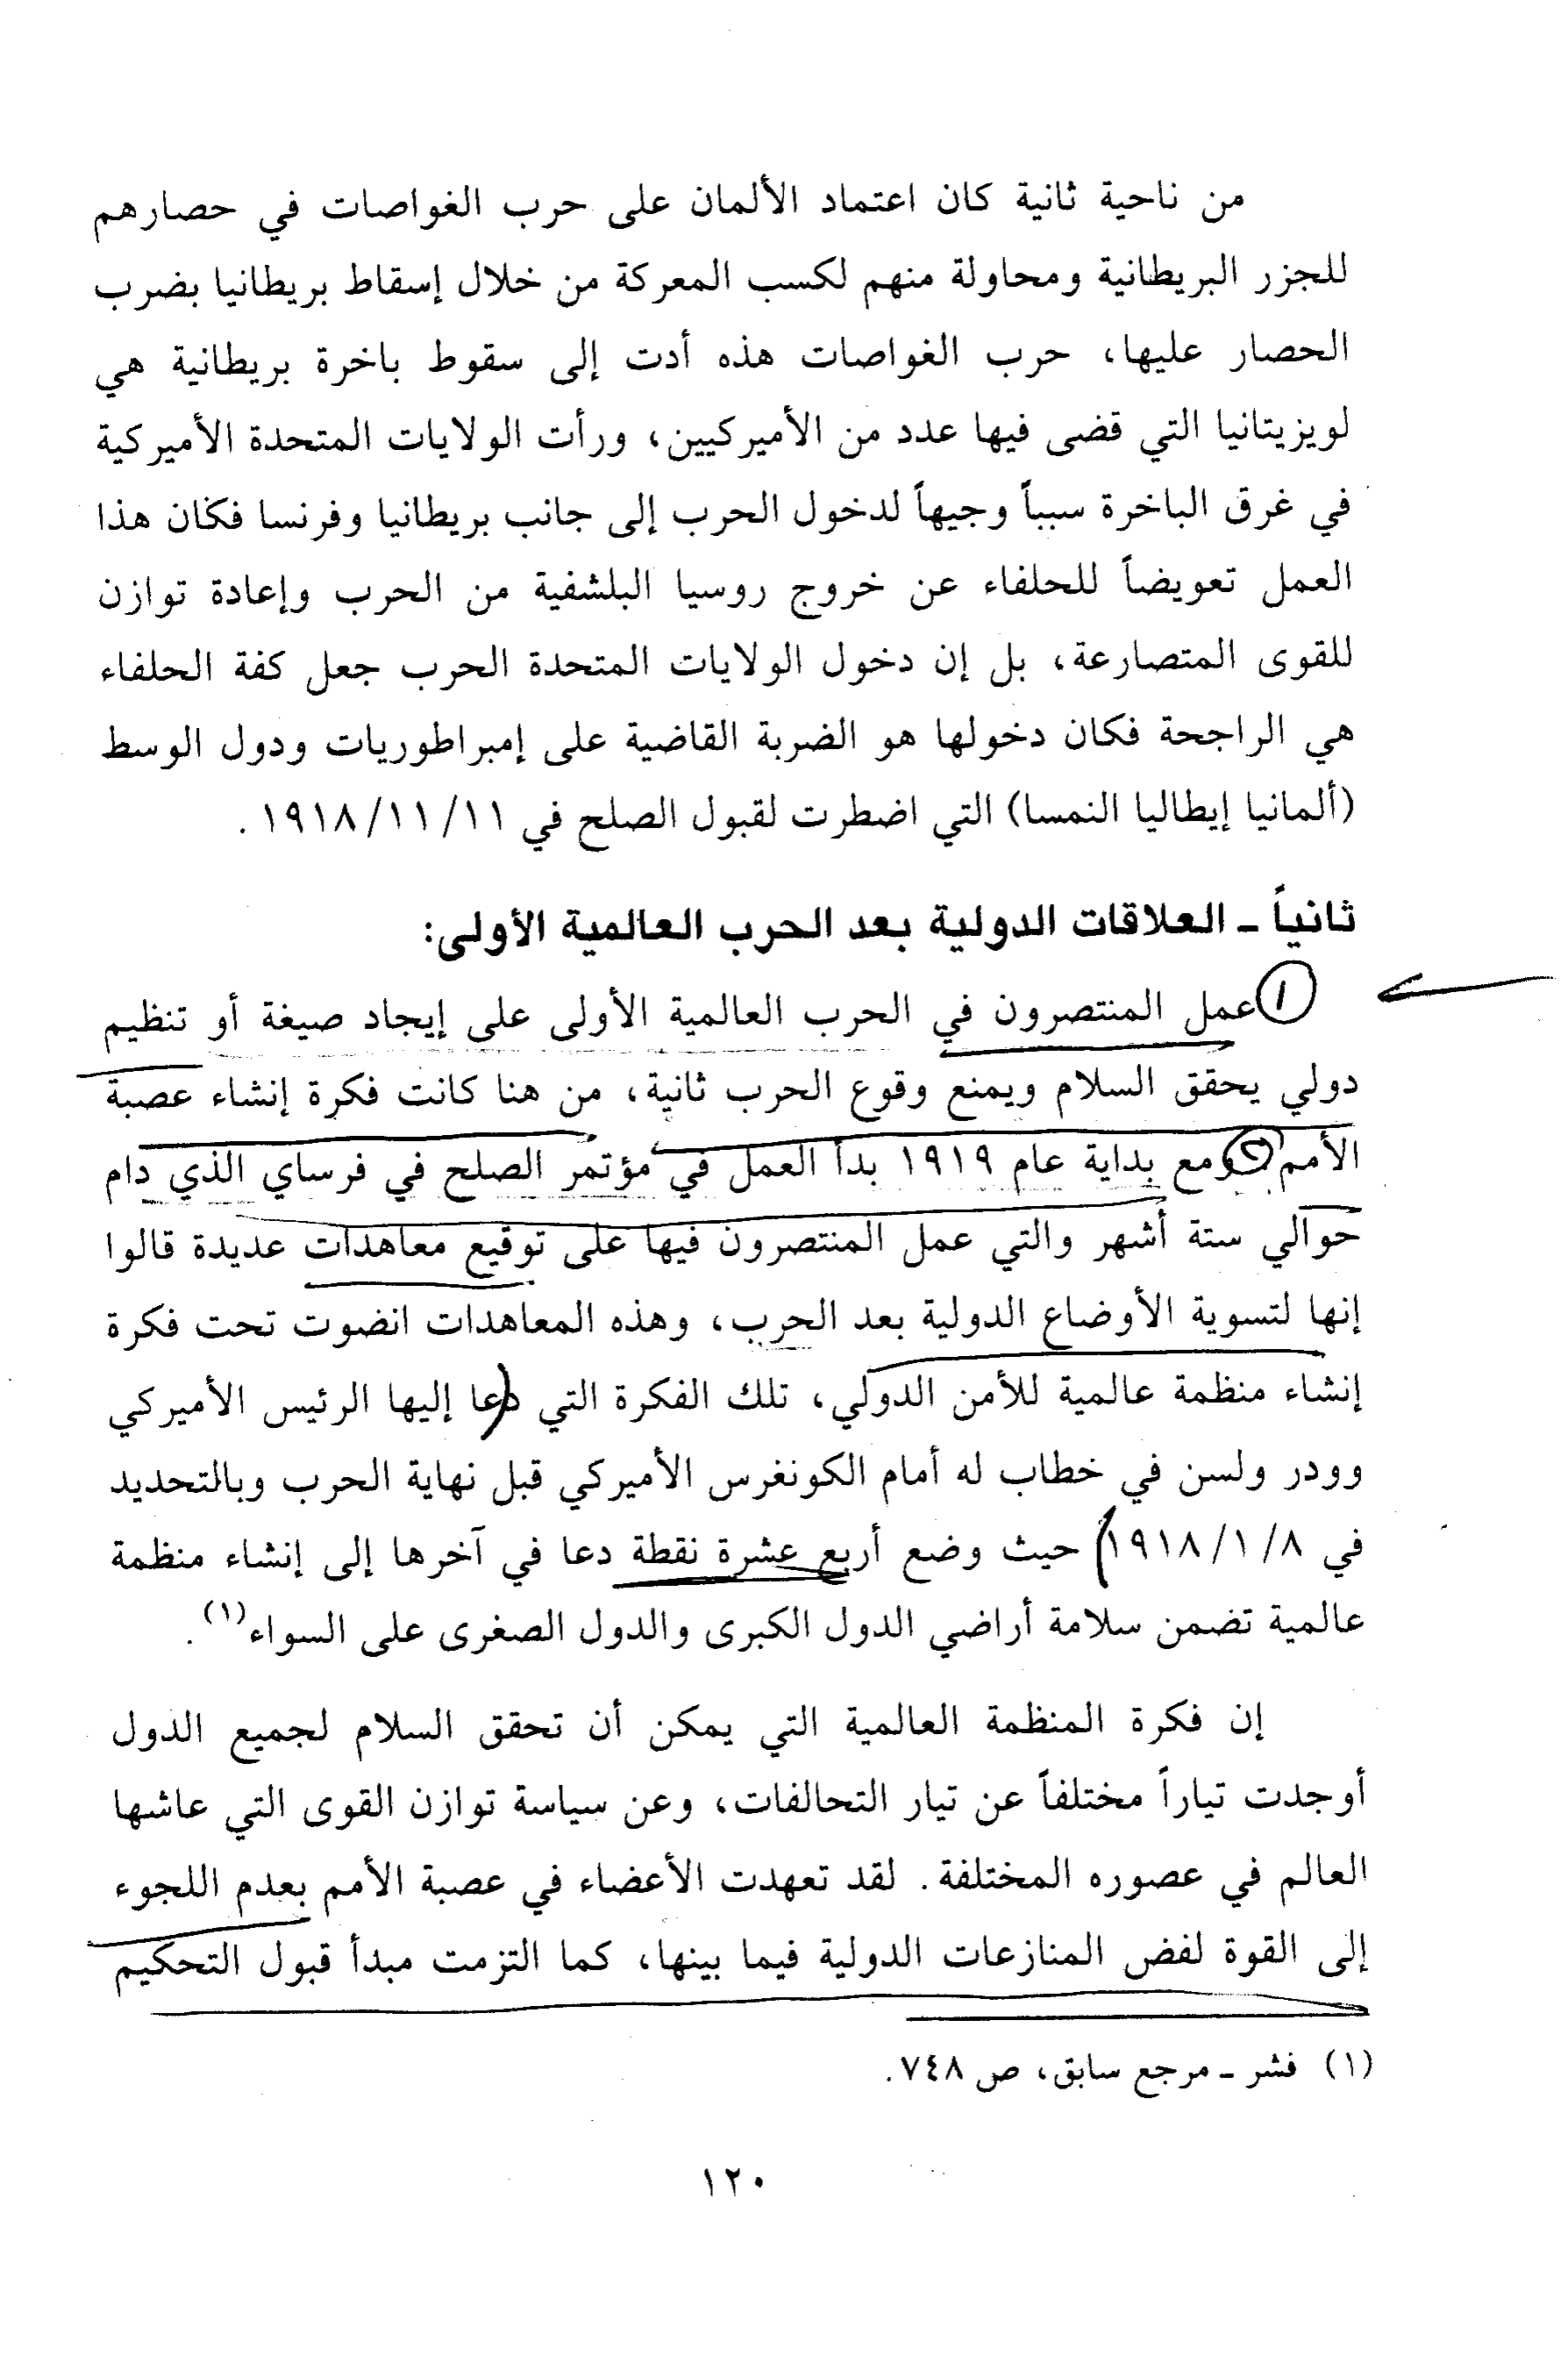 من ناحية ثانية كان اعتماد الألمان على حرب الغواصات في حصارهم
للجزر البريطانية ومحاولة منهم لكسب المعركة من خلال إسقاط بريطانيا بضرب
الحصار عليها، حرب الغواصات هذه أدت إلى سقوط باخرة بريطانية هي
لويزيتانيا التي قضى فيها عدد من الأميركيين، ورأت الولايات المتحدة الأميركية
في غرق الباخرة سبباً وجيهاً لدخول الحرب إلى جانب بريطانيا وفرنسا فكان هذا
العمل تعويضاً للحلفاء عن خروج روسيا البلشفية من الحرب وإعادة توازن
للقوى المتصارعة، بل إن دخول الولايات المتحدة الحرب جعل كفة الحلفاء
هي الراجحة فكان دخولها هو الضربة القاضية على إمبراطوريات ودول الوسط
(ألمانيا إيطاليا النمسا) التي اضطرت لقبول الصلح في ١٩١٨/١١/١١.
ثانياً ـ العلاقات الدولية بعد الحرب العالمية الأولى:
١ عمل المنتصرون في الحرب العالمية الأولى على إيجاد صيغة أو تنظيم
دولي يحقق السلام ويمنع وقوع الحرب ثانية، من هنا كانت فكرة إنشاء عصبة
الأمم. ٢ ومع بداية عام ١٩١٩ بدأ العمل في مؤتمر الصلح في فرساي الذي دام
حوالي ستة أشهر والتي عمل المنتصرون فيها على توقيع معاهدات عديدة قالوا
إنها لتسوية الأوضاع الدولية بعد الحرب، وهذه المعاهدات انضوت تحت فكرة
إنشاء منظمة عالمية للأمن الدولي، تلك الفكرة التي دعا إليها الرئيس الأميركي
وودر ولسن في خطاب له أمام الكونغرس الأميركي قبل نهاية الحرب وبالتحديد
في ١٩١٨/١/٨ حيث وضع أربع عشرة نقطة دعا في آخرها إلى إنشاء منظمة
عالمية تضمن سلامة أراضي الدول الكبرى والدول الصغرى على السواء(١).
إن فكرة المنظمة العالمية التي يمكن أن تحقق السلام لجميع الدول
أوجدت تياراً مختلفاً عن تيار التحالفات، وعن سياسة توازن القوى التي عاشها
العالم في عصوره المختلفة. لقد تعهدت الأعضاء في عصبة الأمم بعدم اللجوء
إلى القوة لفض المنازعات الدولية فيما بينها، كما التزمت مبدأ قبول التحكيم
(١) فشر ـ مرجع سابق، ص ٧٤٨.
١٢٠